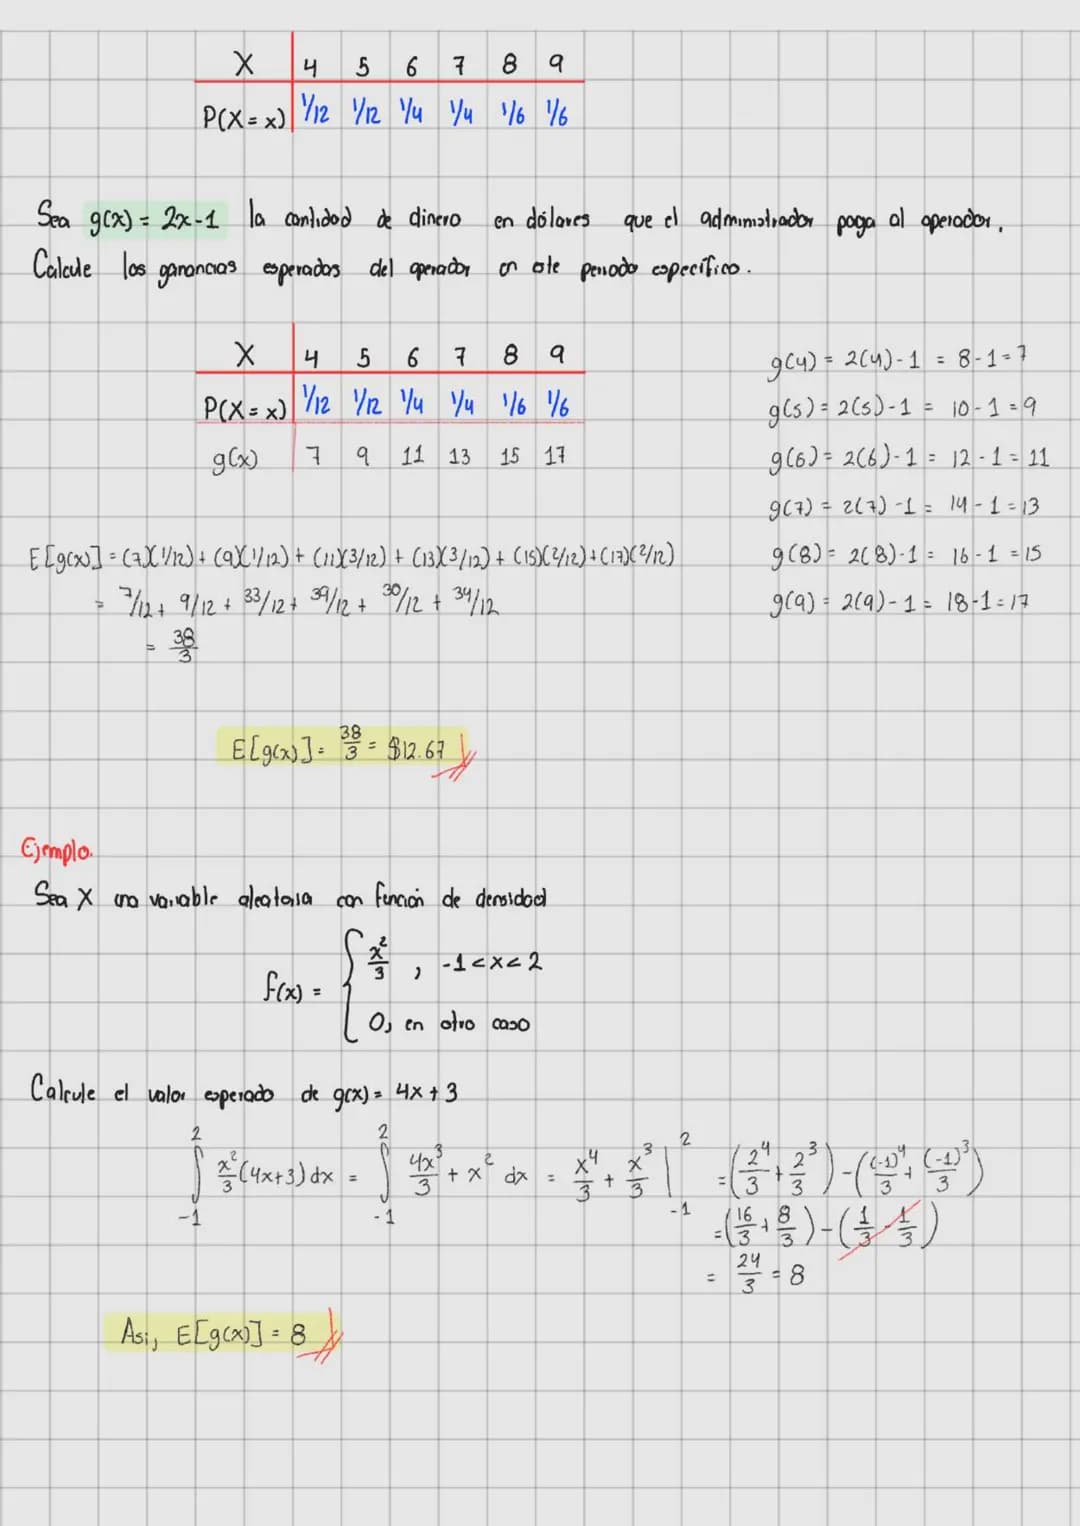 X 4 5 6 7 8 9
P(X = x) 1/12 1/12 1/4 1/4 1/6 1/6
Sea g(x) = 2x-1 la cantidad de dinero en dólares que el administrador paga al operador.
Calcule las ganancias esperadas del operador en este periodo específico.
X 4 5 6 7 8 9
P(X = x) 1/12 1/12 1/4 1/4 1/6 1/6
g(x) 7 9 11 13 15 17
g(4) = 2(4)-1 = 8-1=7
g(5) = 2(5)-1 = 10-1=9
g(6) = 2(6)-1 = 12-1=11
g(7) = 2(7)-1 = 14-1=13
g(8) = 2(8)-1 = 16-1=15
g(9) = 2(9)-1 = 18-1=17
E[g(x)] = (7)(1/12) + (9)(1/12) + (11)(3/12) + (13)(3/12) + (15)(2/12) + (17)(2/12)
= 7/12 + 9/12 + 33/12 + 39/12 + 30/12 + 34/12
= 38/3
E[g(x)] = 38/3 = $12.67
Ejemplo.
Sea X una variable aleatoria con función de densidad
f(x) = { x²/3 , -1<x<2
0, en otro caso
Calcule el valor esperado de g(x) = 4x + 3
∫₋₁² x²/3 (4x+3) dx = ∫₋₁² 4x³/3 + x² dx = x⁴/3 + x³/3 |₋₁² = (2⁴/3 + 2³/3) - ((-1)⁴/3 + (-1)³/3)
= (16/3 + 8/3) - (1/3 - 1/3)
= 24/3 = 8
Asi, E[g(x)] = 8